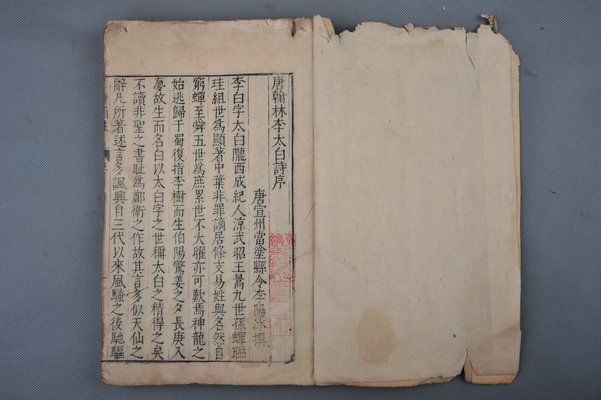 唐翰林李太白詩序
唐宣州當塗縣令李陽冰撰
李白字太白隴西成紀人涼武昭王暠九世孫蟬聯
珪組世為顯著中葉非罪謫居條支易姓與名然自
窮蟬至舜五世為庶累世不大曜亦可歎焉神龍之
始逃歸于蜀復指李樹而生伯陽驚姜之夕長庚入
夢故生而名白以太白字之世稱太白之精得之矣
不讀非聖之書恥為鄭衛之作故其言多似天仙之
辭凡所著述言多諷興自三代以來風騷之後馳驅